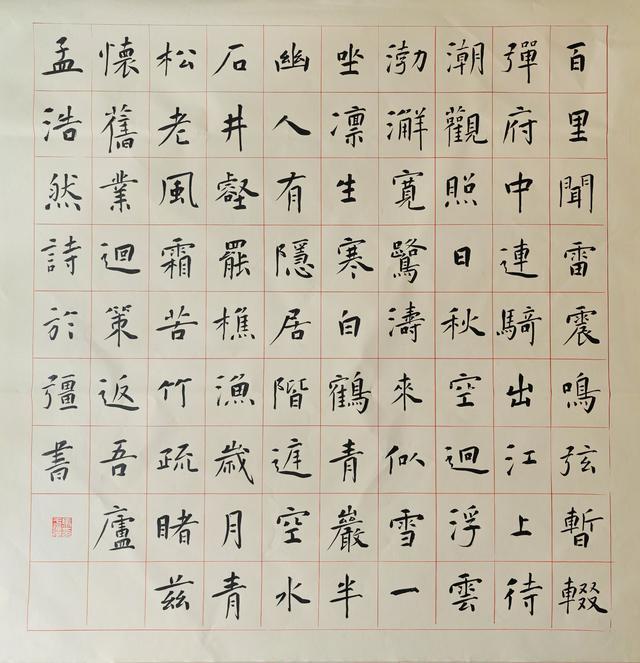 百里聞雷震鳴弦暫輟
彈府中連騎出江上待
潮觀照日秋空迴浮雲
渤澥寬驚濤來似雪一
坐凛生寒白鶴青巖半
幽人有隱居階庭空水
石井壑罷樵漁歲月青
松老風霜苦竹疏睹茲
懷舊業迴策返吾廬
孟浩然詩於彊書